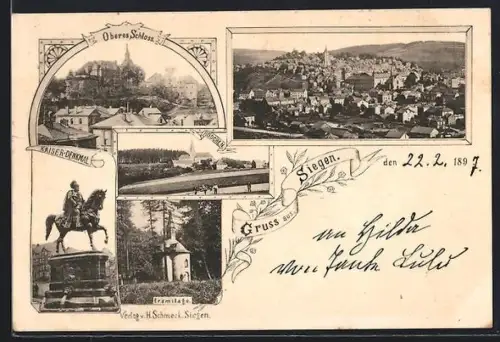 Oberes Schloss.
KAISER-DENKMAL
Gruss aus
Siegen.
den 22.2. 1897.
an Hilda
von Tante Lulu
Eremitage.
Verlag v. H. Schmeck, Siegen.